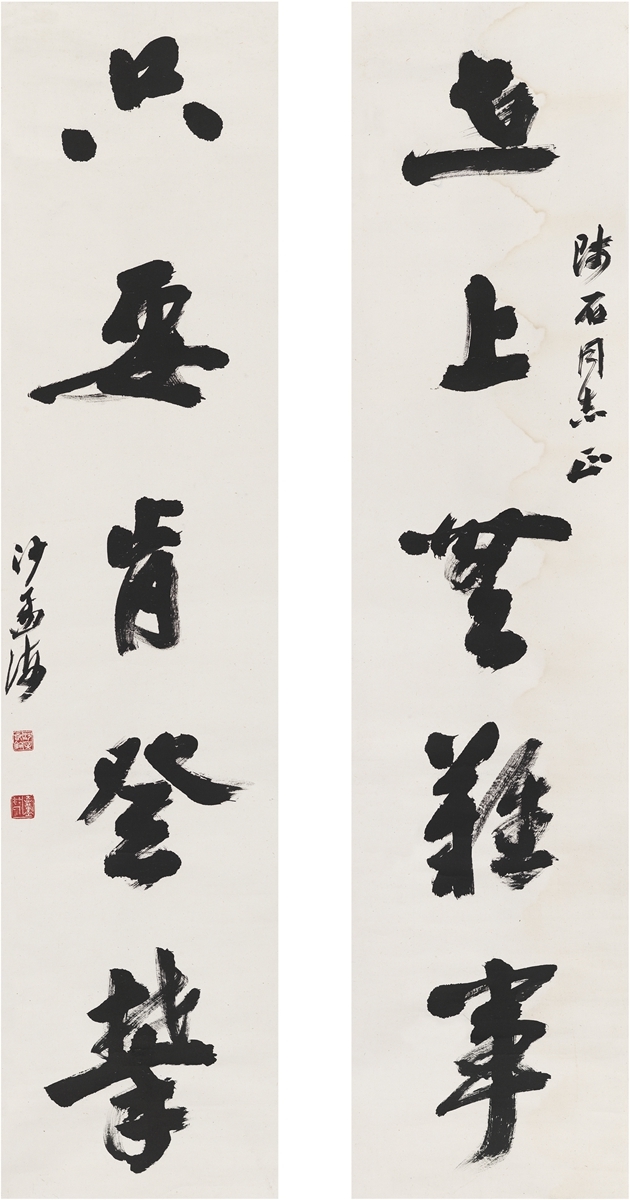 世上無難事
石同志正
只要肯登攀
沙孟海